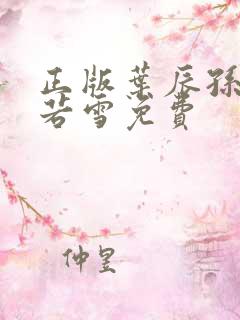 正版葉辰孫
若雪免費
仲星